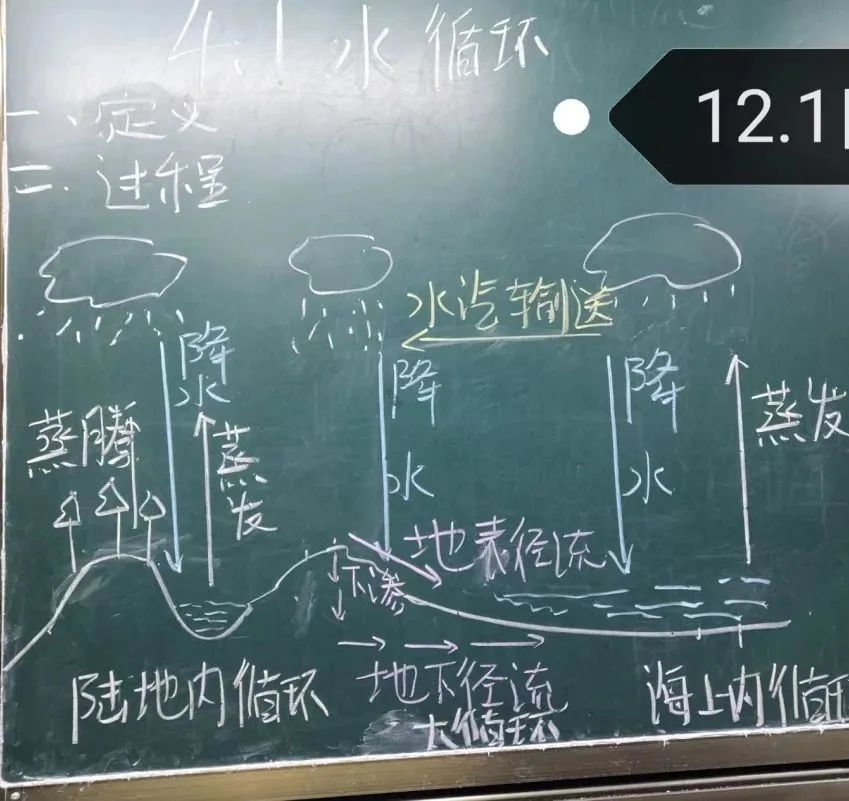 4.1 水循环
一、定义
二、过程
水汽输送
降水
降水
降水
蒸腾
蒸发
蒸发
地表径流
下渗
陆地内循环
地下径流
海上内循环
大循环
12.1